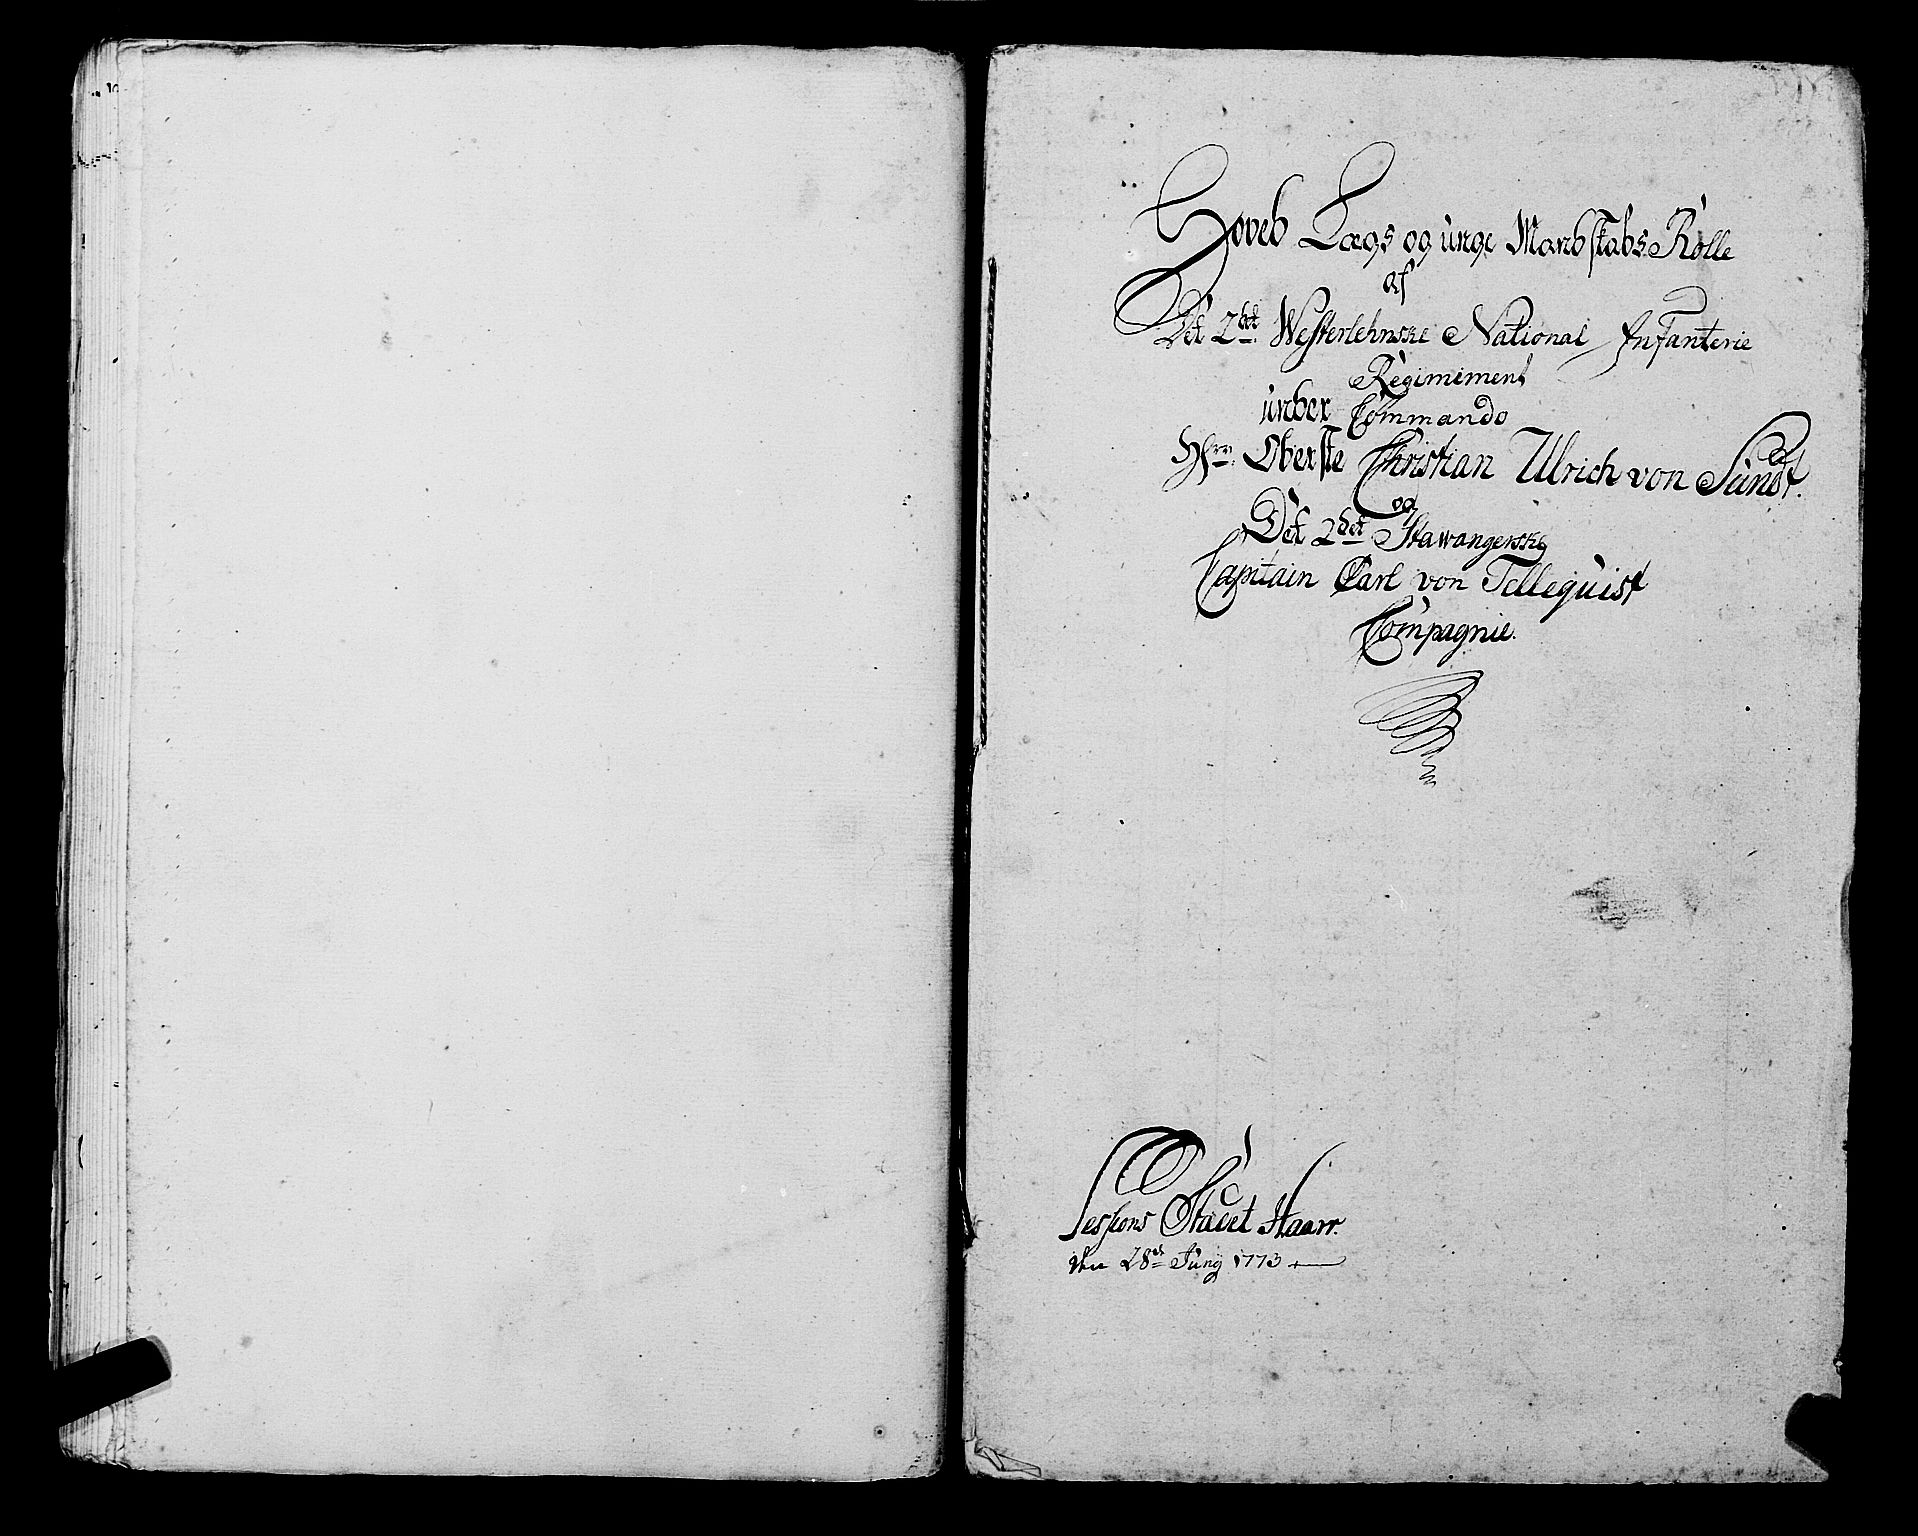 Hoved Lægs og unge Mandskabs Rolle
af
Det 2det Westerlehnske National Infanterie
Regimement
under Commando
Hr. Oberste Christian Ulrich von Sundt.
og
Det 2det Stawangerske
Capitain Carl von Tellequist
Compagnie.
Sessions Stædet Haarr.
den 28de Junÿ 1773